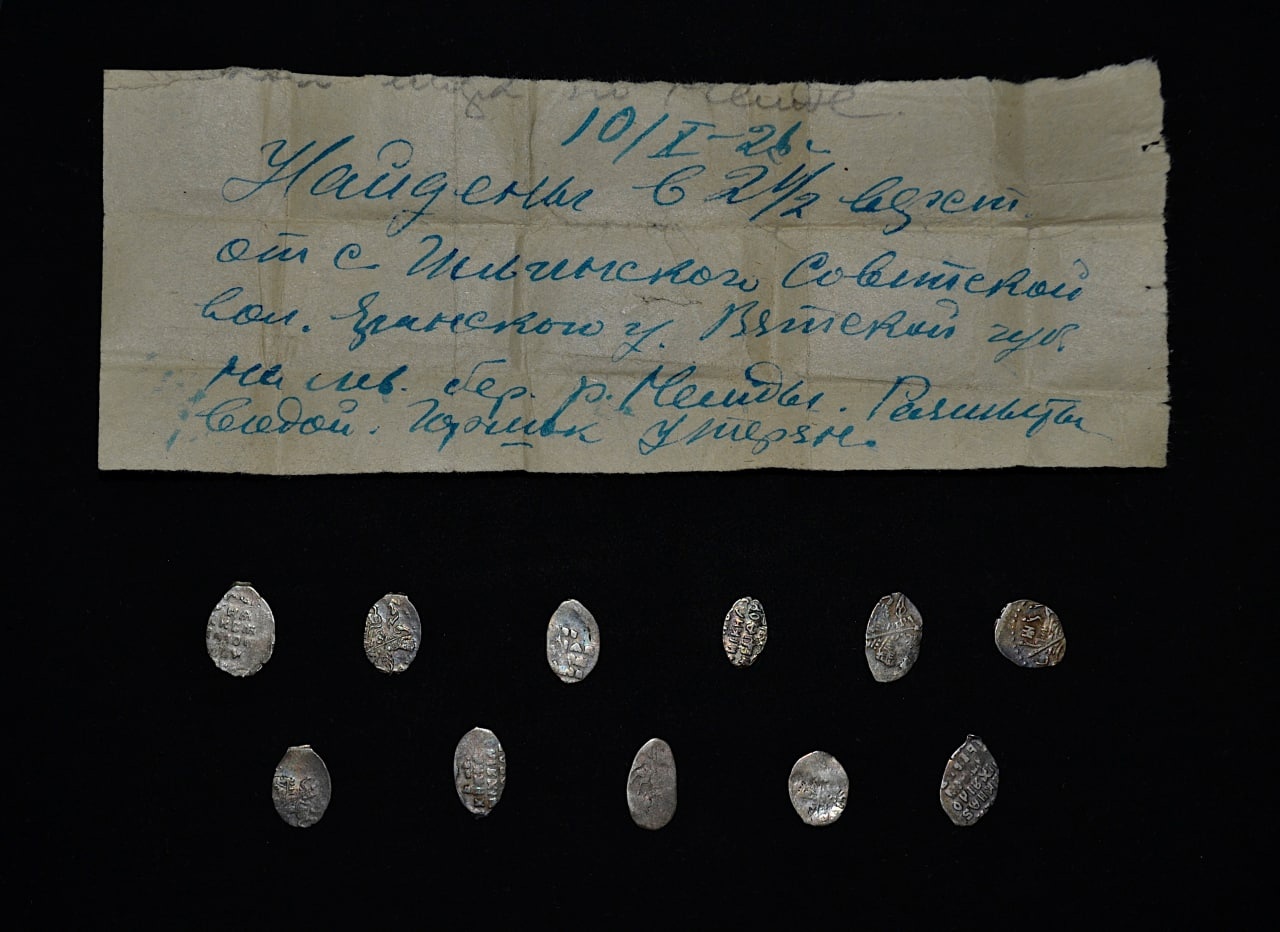 по Немде.
10/I–26.
Найдены в 2 1/2 верст.
от с. Ильинского Советской
вол. Яранского у. Вятской губ.
на лев. бер. р. Немды. Размыты
водой. Горшок утерян.